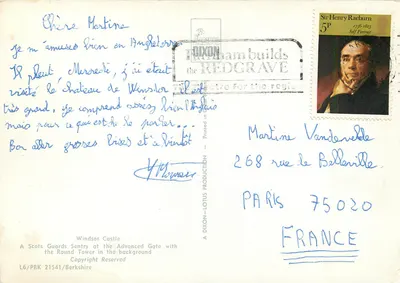 Chère Martine
Je m'amuse bien en Angleterre
Il pleut, Mercredi, j'ai était
visité le chateau de Winsdor il est
très grand, je comprend assez bien l'anglais
mais pour ce qui est de le parler...
Bon aller grosses bises et à bientôt
Windsor Castle
A State Guards Sentry at the Advanced Gate with
the Round Tower in the background
Copyright Reserved
L6/PBK 21541/Berkshire
DIXON
A DIXON-LOTUS PRODUCTION
Printed in
builds
the REDGRAVE
for the
Sir Henry Raeburn
1756-1823
Self Portrait
5p
Martine Vandevelde
268 rue de Belleville
PARIS 75020
FRANCE